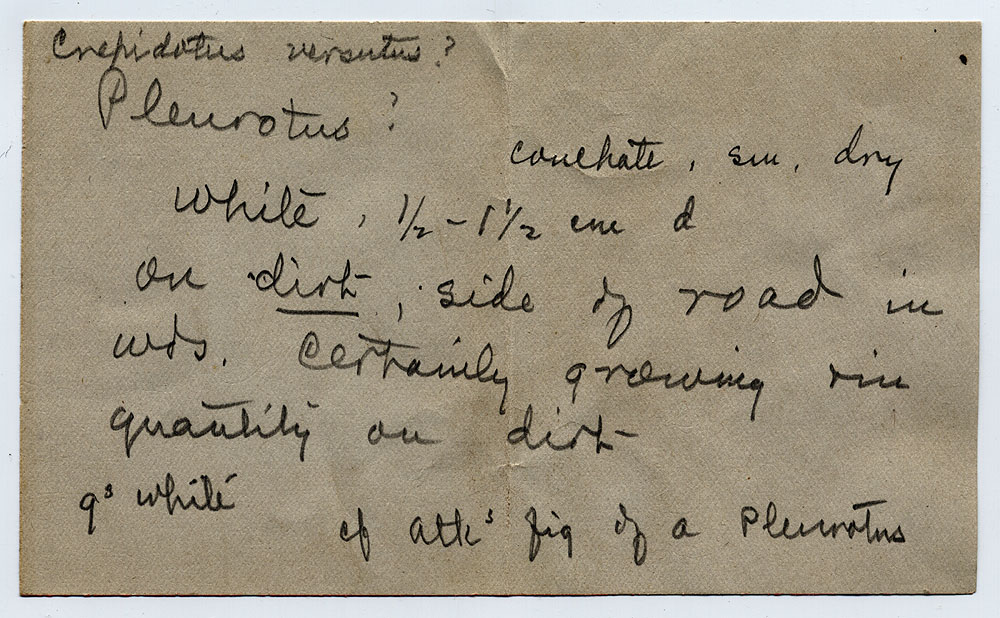 Crepidotus versutus?
Pleurotus ?
conchate, sm, dry
white, 1/2 - 1 1/2 cm d
on dirt, side of road in
wds. Certainly growing in
quantity on dirt
gs white
cf Atks fig of a Pleurotus